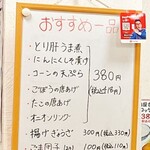 おすすめ一品
・とり肝うま煮
・にんにくしそ漬け
・コーンの天ぷら
・ごぼうの唐あげ
・たこの唐あげ
・オニオンリング
380円
(税込418円)
・揚げぎょうざ 300円(税込330円)
・ごま団子 100円(税込110円)